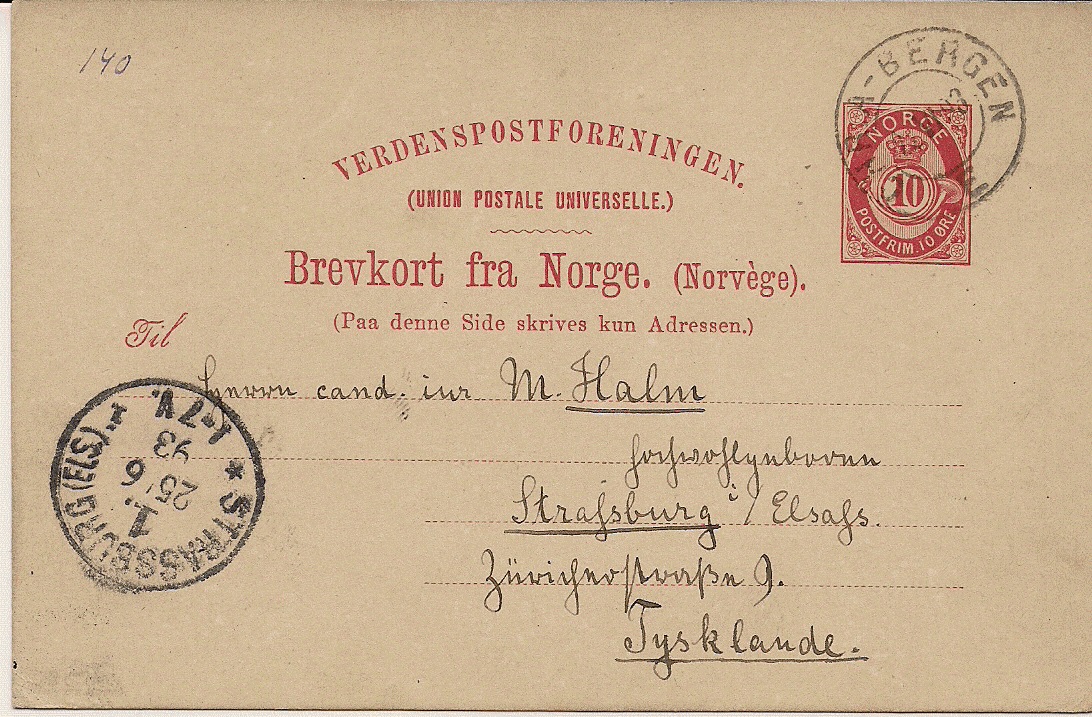 140
BERGEN
VERDENSPOSTFORENINGEN.
(UNION POSTALE UNIVERSELLE.)
NORGE
10
POSTFRIM. 10 ØRE
Brevkort fra Norge. (Norvège).
(Paa denne Side skrives kun Adressen.)
Til
Herrn cand. iur M. Halm
Hochwohlgeboren
Straſsburg i/Elsaſs.
Züricherstraße 9.
Tysklande.
STRASSBURG (ELS). 1.
25/6
93
1-7 V.